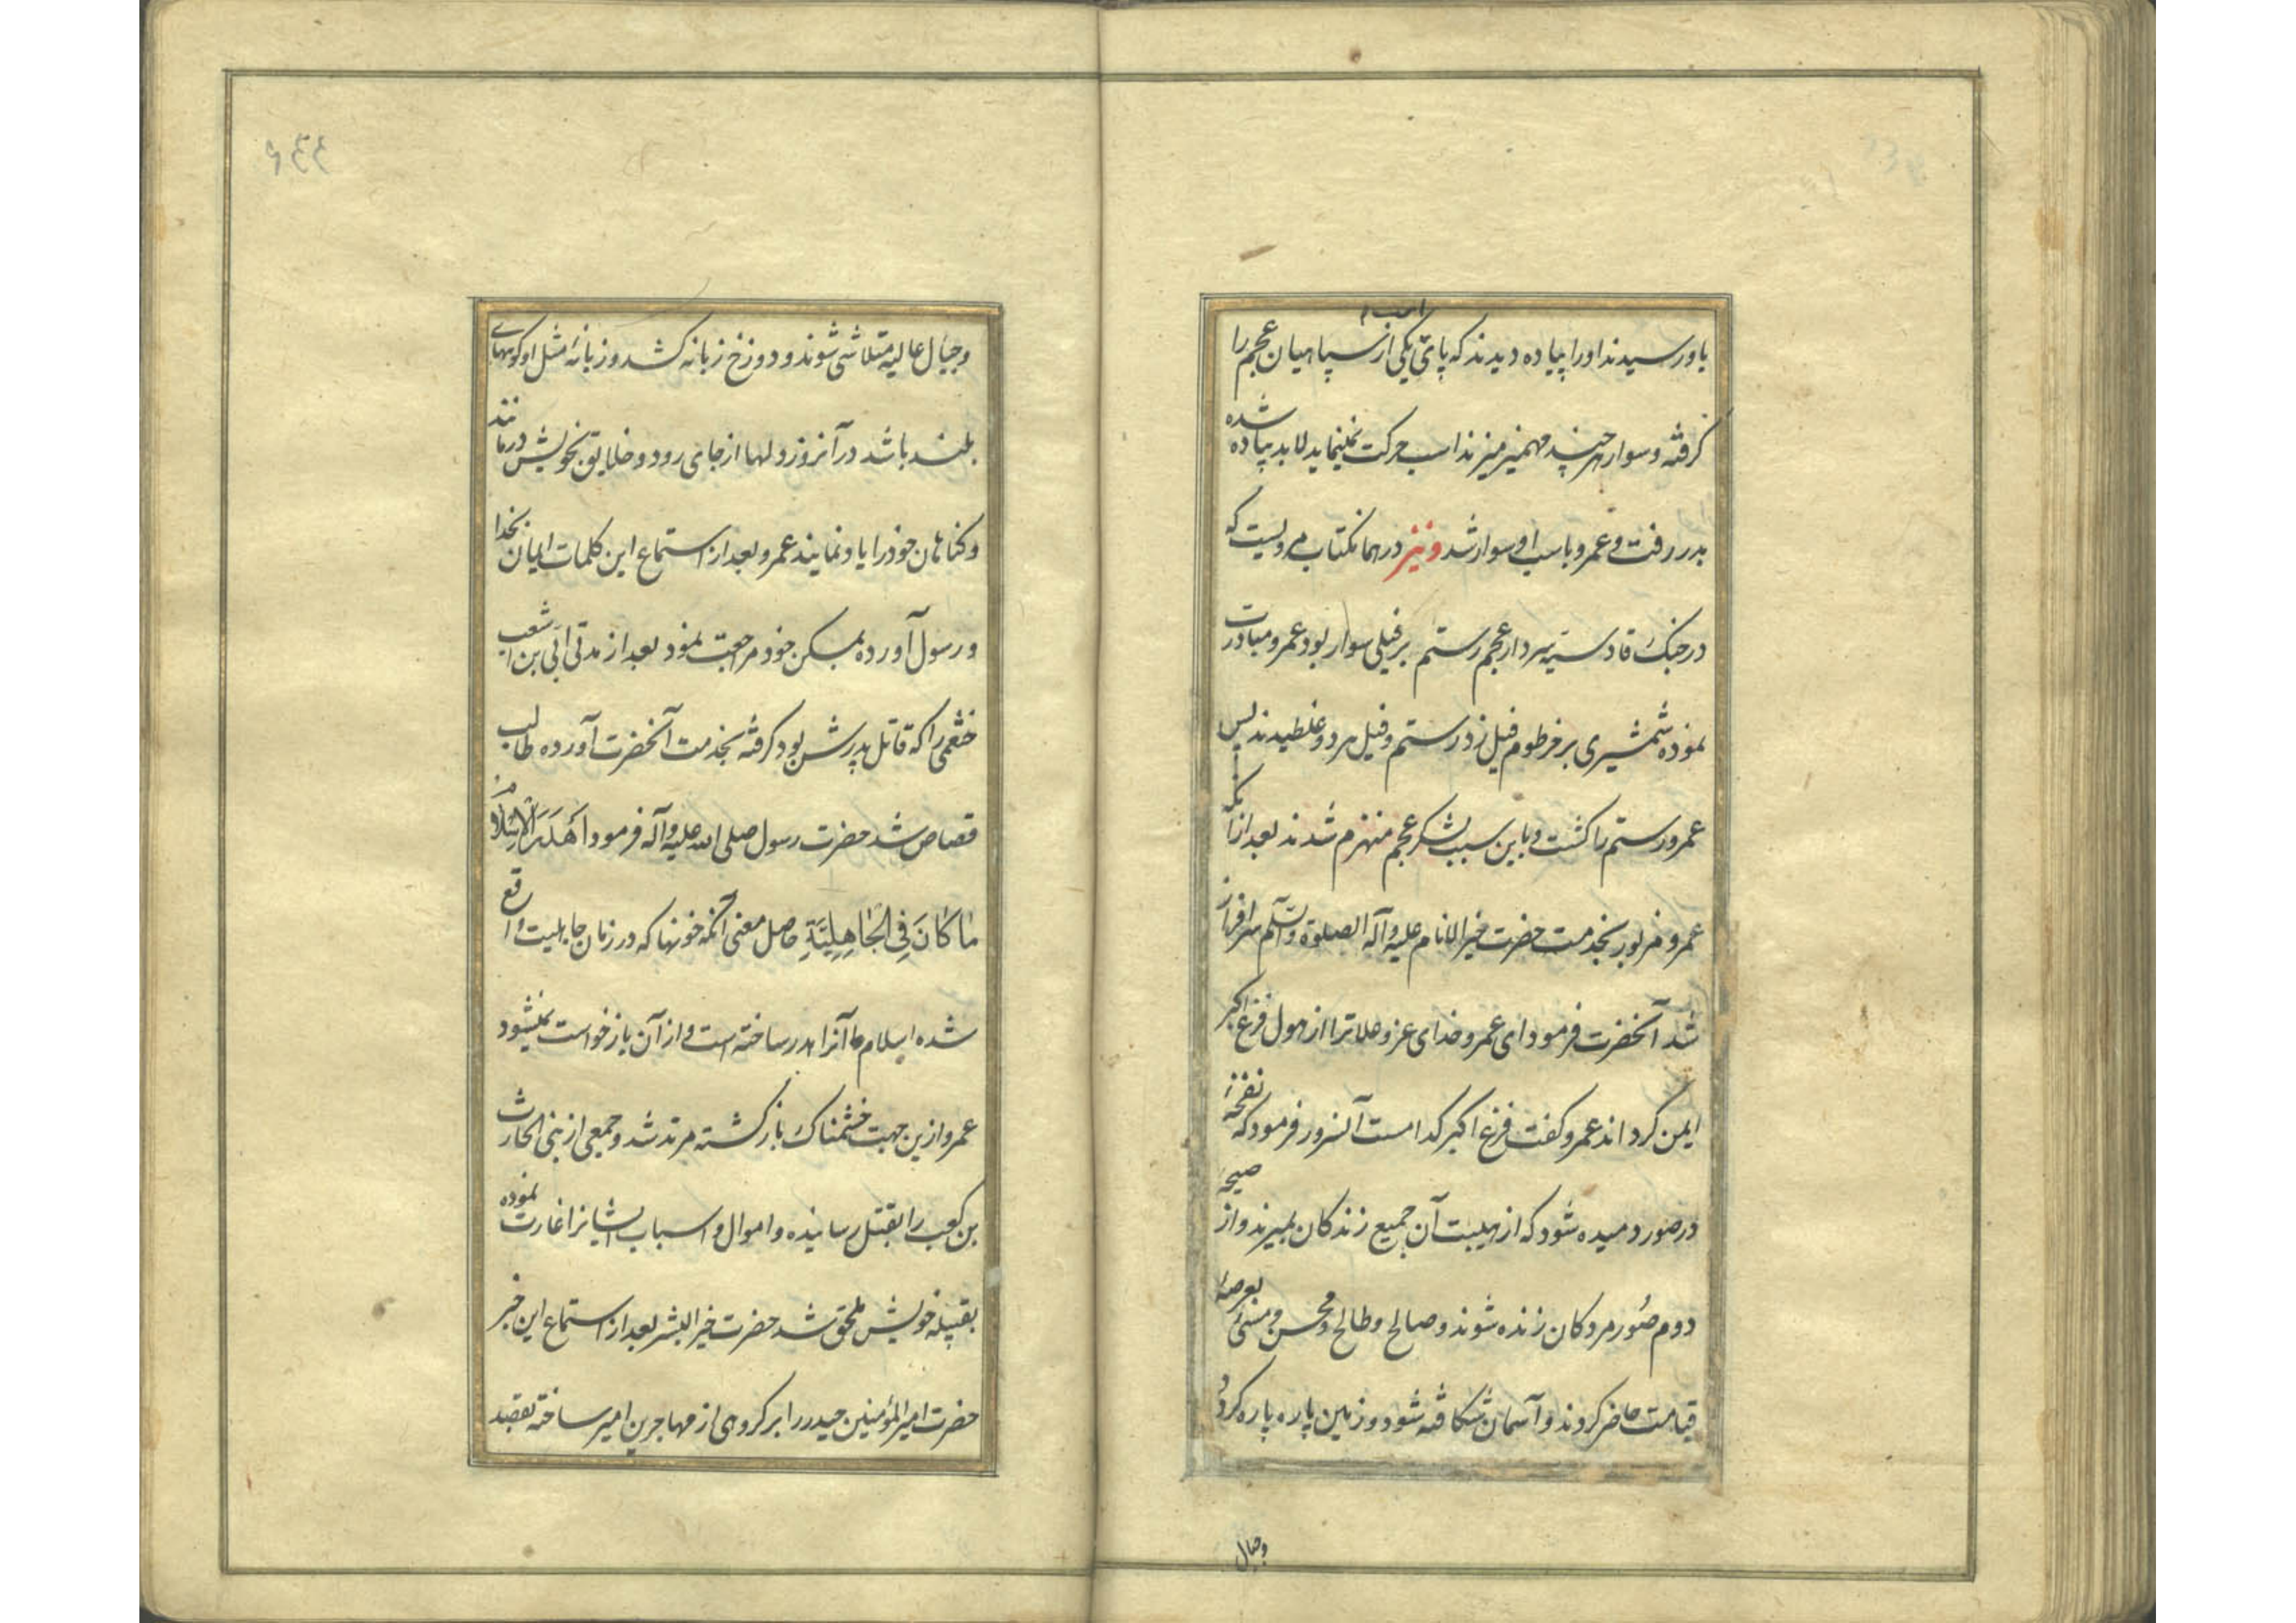 باو رسیدند او را پیاده دیدند که پای یکی از سپاهیان عجم را
گرفته و سوار هر چند مهمیز میزند اسب حرکت نمینماید لابد پیاده شده
بدر رفت و عمرو باسب او سوار شد و نیز در همانکتاب مرویست که
در جنگ قادسیه سردار عجم رستم بر فیلی سوار بود عمرو مبادرت
نموده شمشیری بر خرطوم فیل زد رستم و فیل هر دو غلطیدند پس
عمرو رستم را کشت و باین سبب لشکر عجم منهزم شدند بعد از آنکه
عمرو مزبور بخدمت حضرت خیر الانام علیه و آله الصلوة و السلم سرافراز
شد آنحضرت فرمود ای عمرو خدای عز و علا ترا از هول فزع اکبر
ایمن گرداند عمرو گفت فزع اکبر کدامست آنسرور فرمود که نفخهٔ
در صور دمیده شود که از هیبت آن جمیع زندگان بمیرند و از صیحهٔ
دوم صور مردگان زنده شوند و صالح و طالح و محسن و مسئ بعرصهٔ
قیامت حاضر گردند و آسمان شکافته شود و زمین پاره پاره گردد
وجبال
و جبال عالیه متلاشی شوند و دوزخ زبانه کشد و زبانهٔ مثل او کوههای
بلند باشد در آنروز دلها از جای رود و خلایق بخویش درمانند
و گناهان خود را یاد نمایند عمرو بعد از استماع این کلمات ایمان بخدا
و رسول آورده بمسکن خود مراجعت نمود بعد از مدتی ابی بن اشعب
خثعمی را که قاتل پدرش بود گرفته بخدمت آنحضرت آورده طالب
قصاص شد حضرت رسول صلی الله علیه و آله فرمود اَهْدَرَ الْاِسْلَامُ
مَا كَانَ فِي الْجَاهِلِيَّةِ حاصل معنی آنکه خونها که در زمان جاهلیت واقع
شده اسلام ما آنرا هدر ساخته است و از آن بازخواست نمیشود
عمرو ازین جهت خشمناک بازگشته مرتد شد و جمعی از بنی الحارث
بن کعب را بقتل رسانیده و اموال و اسباب ایشانرا غارت نموده
بقبیله خویش ملحق شد حضرت خیر البشر بعد از استماع این خبر
حضرت امیر المؤمنین حیدر را بر گروهی از مهاجرین امیر ساخته بقصد